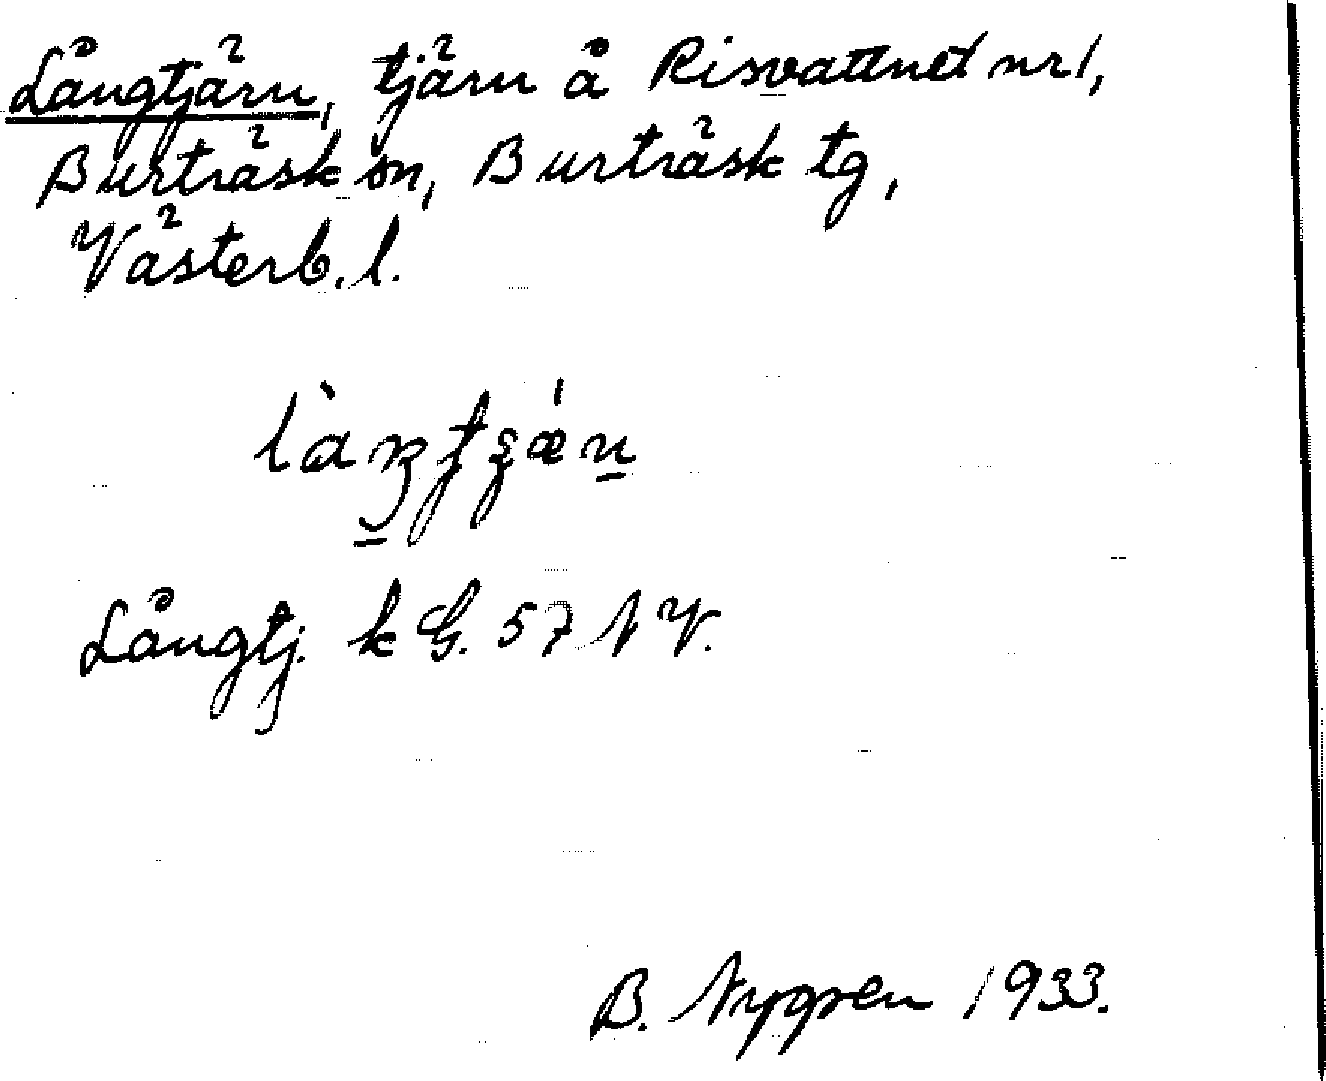 Långtjärn, tjärn å Risvattnet nr 1,
Burträsk sn, Burträsk tg,
Västerb. l.
Långtj. k G. 57 N V.
B. Nygren 1933.